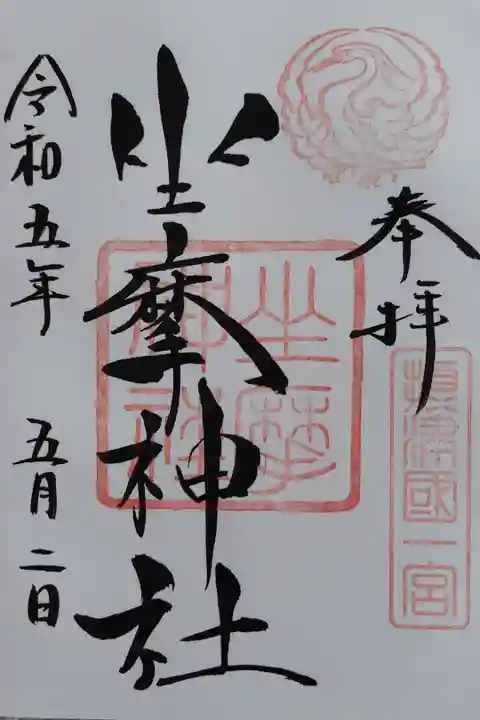 奉拝
攝津國一宮
坐摩神社
坐摩
神社
令和五年 五月二日